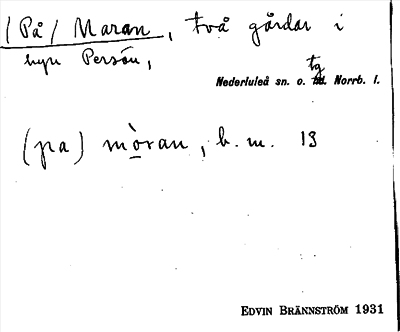 /På/ Maran, två gårdar i
byn Persön,
tg
Nederluleå sn. o. hd. Norrb. l.
(pa) mòran, b. m. 13
EDVIN BRÄNNSTRÖM 1931